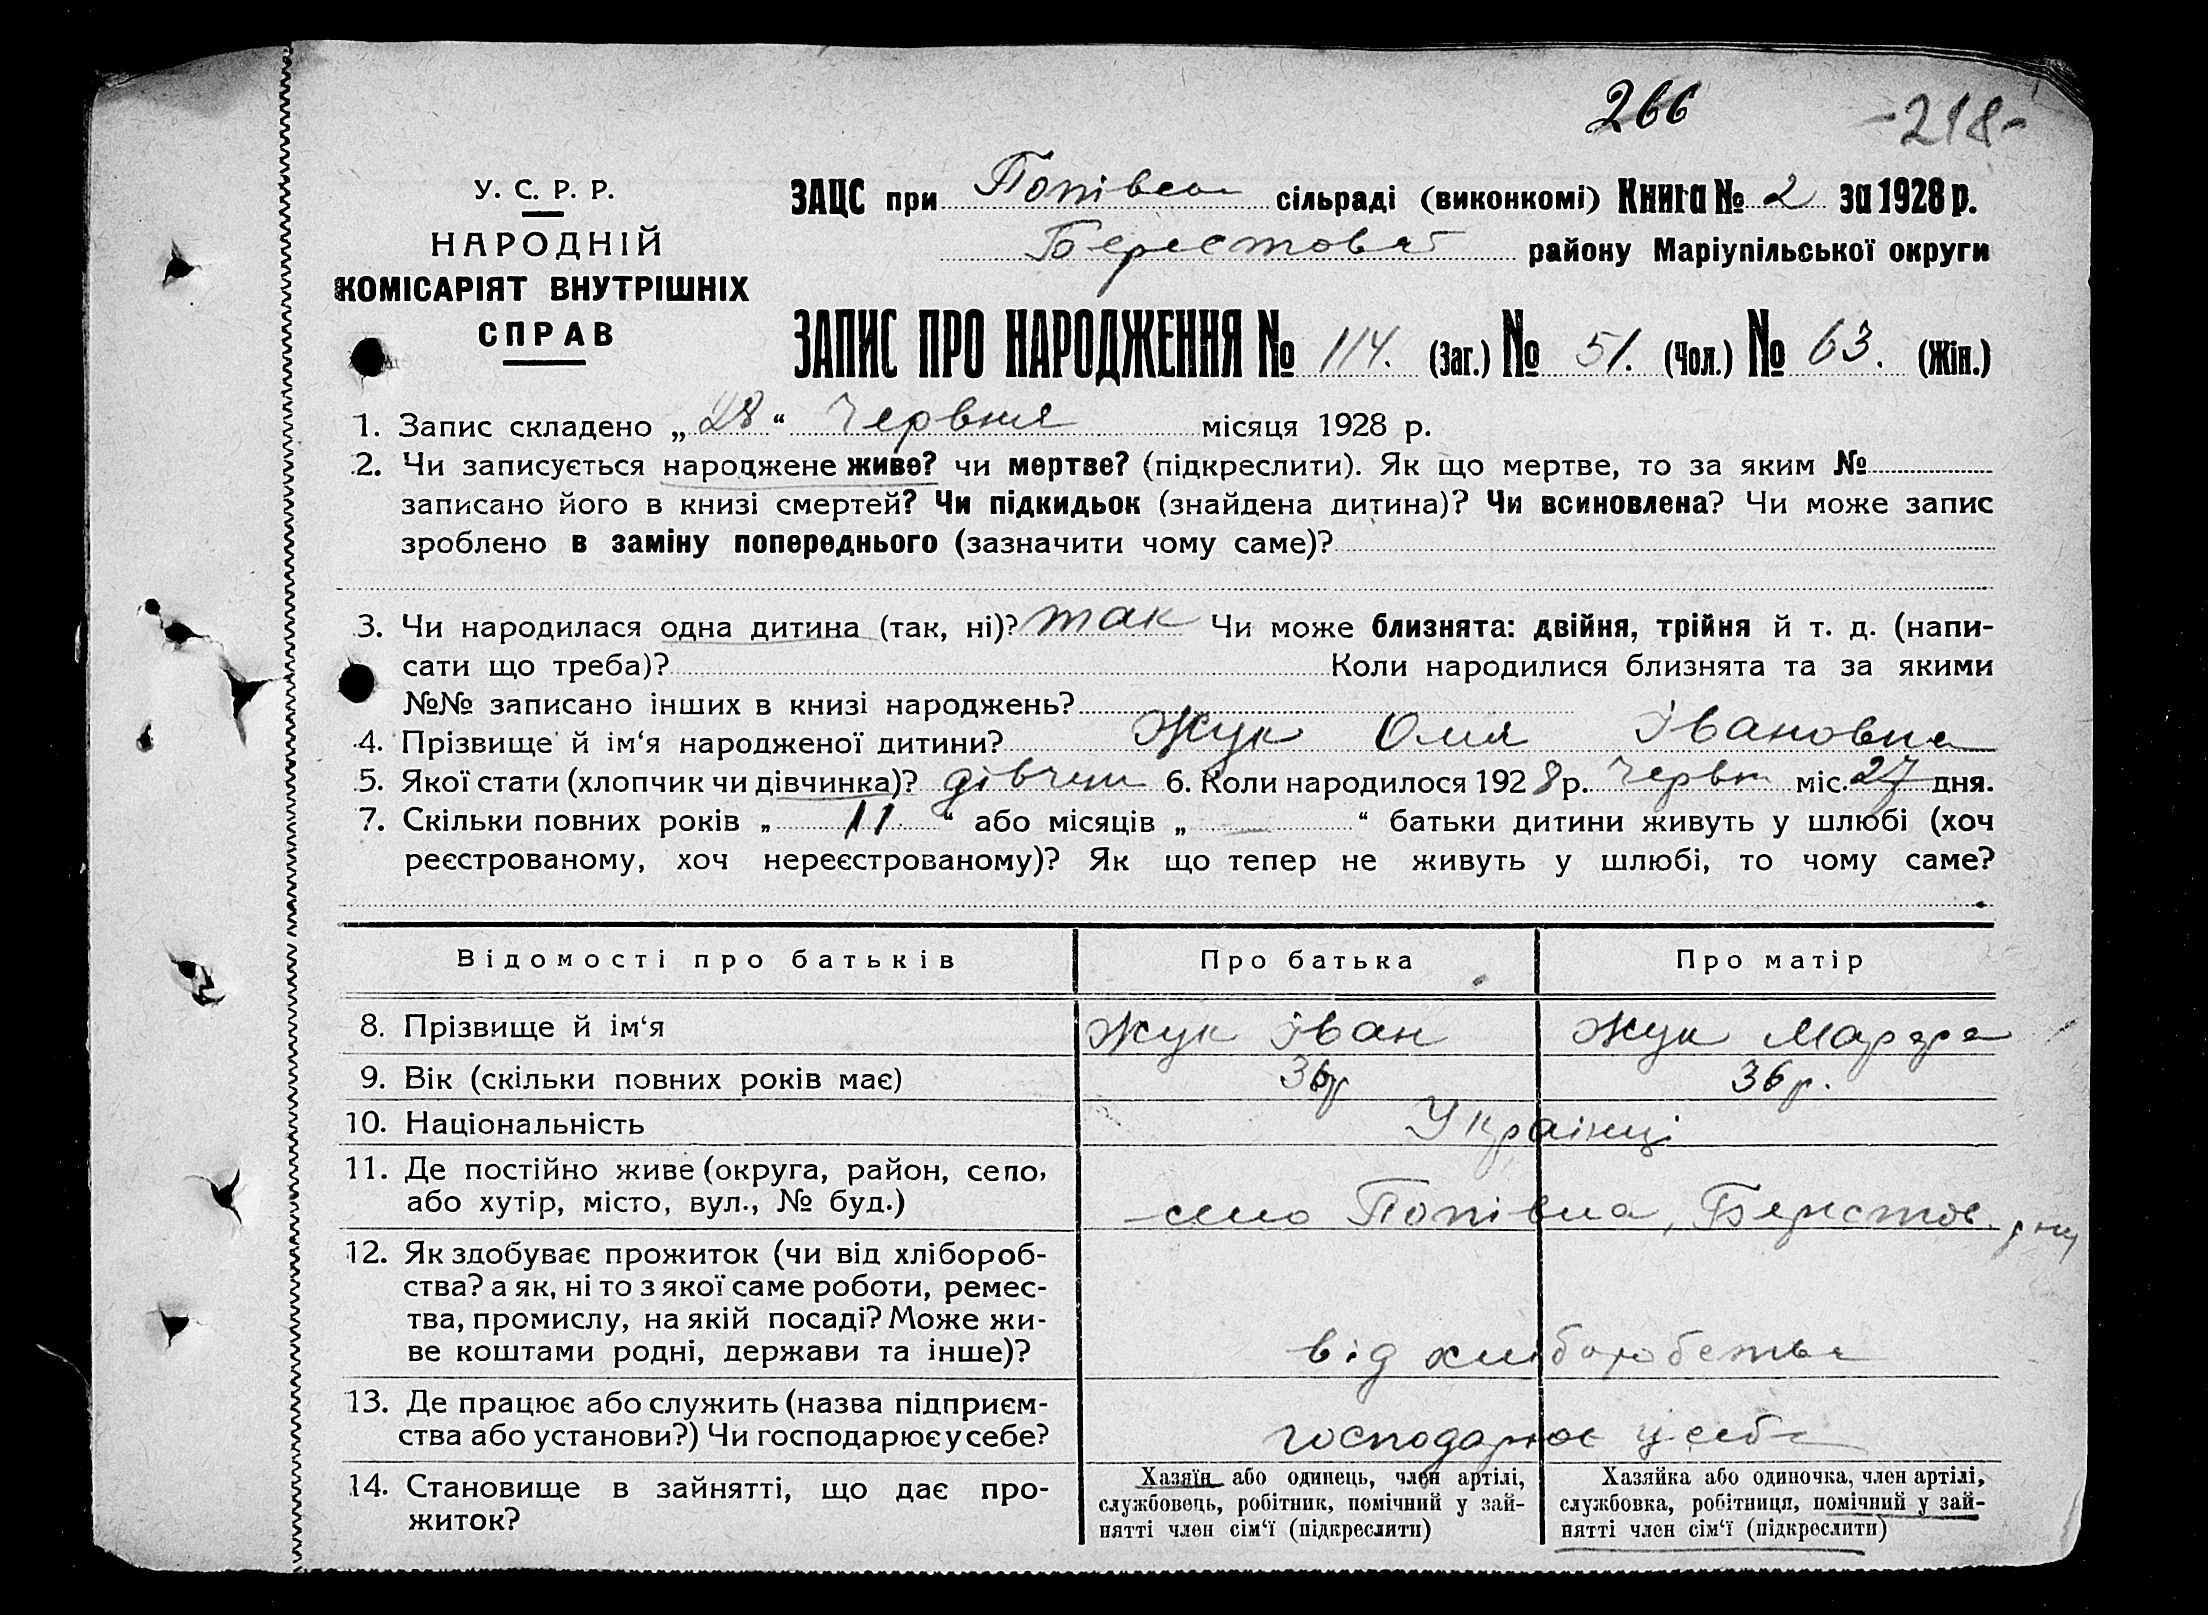 266 -218-
У. С. Р. Р.
НАРОДНІЙ
КОМІСАРІЯТ ВНУТРІШНІХ
СПРАВ
ЗАЦС при Попівськ сільраді (виконкомі) Книга № 2 за 1928 р.
Берестоват району Маріупільської округи
ЗАПИС ПРО НАРОДЖЕННЯ № 114. (Заг.) № 51. (Чол.) № 63. (Жін.)
1. Запис складено „28“ Червня місяця 1928 р.
2. Чи записується народжене живе? чи мертве? (підкреслити). Як що мертве, то за яким №
записано його в книзі смертей? Чи підкидьок (знайдена дитина)? Чи всиновлена? Чи може запис
зроблено в заміну попереднього (зазначити чому саме)?
3. Чи народилася одна дитина (так, ні)? так Чи може близнята: двійня, трійня й т. д. (напи-
сати що треба)? Коли народилися близнята та за якими
№№ записано інших в книзі народжень?
4. Прізвище й ім‘я народженої дитини? Жук Оля Івановна
5. Якої стати (хлопчик чи дівчинка)? дівчин 6. Коли народилося 1928 р. Червн міс. 27 дня.
7. Скільки повних років „ 11 “ або місяців „ “ батьки дитини живуть у шлюбі (хоч
реєстрованому, хоч нереєстрованому)? Як що тепер не живуть у шлюбі, то чому саме?
Відомості про батьків Про батька Про матір
8. Прізвище й ім‘я Жук Іван Жук
9. Вік (скільки повних років має) 36р 36р.
10. Національність Українці
11. Де постійно живе (округа, район, село,
або хутір, місто, вул., № буд.) село Попівка, Берестов.
12. Як здобуває прожиток (чи від хлібороб-
ства? а як, ні то з якої саме роботи, ремес-
тва, промислу, на якій посаді? Може жи-
ве коштами родні, держави та інше)? від хліборобства
13. Де працює або служить (назва підприєм-
ства або установи?) Чи господарює у себе? господарює у себе
14. Становище в зайнятті, що дає про-
житок?
Хазяїн або одинець, член артілі,
службовець, робітник, помічний у зай-
нятті член сім‘ї (підкреслити)
Хазяйка або одиночка, член артілі,
службовка, робітниця, помічний у зай-
нятті член сім‘ї (підкреслити)